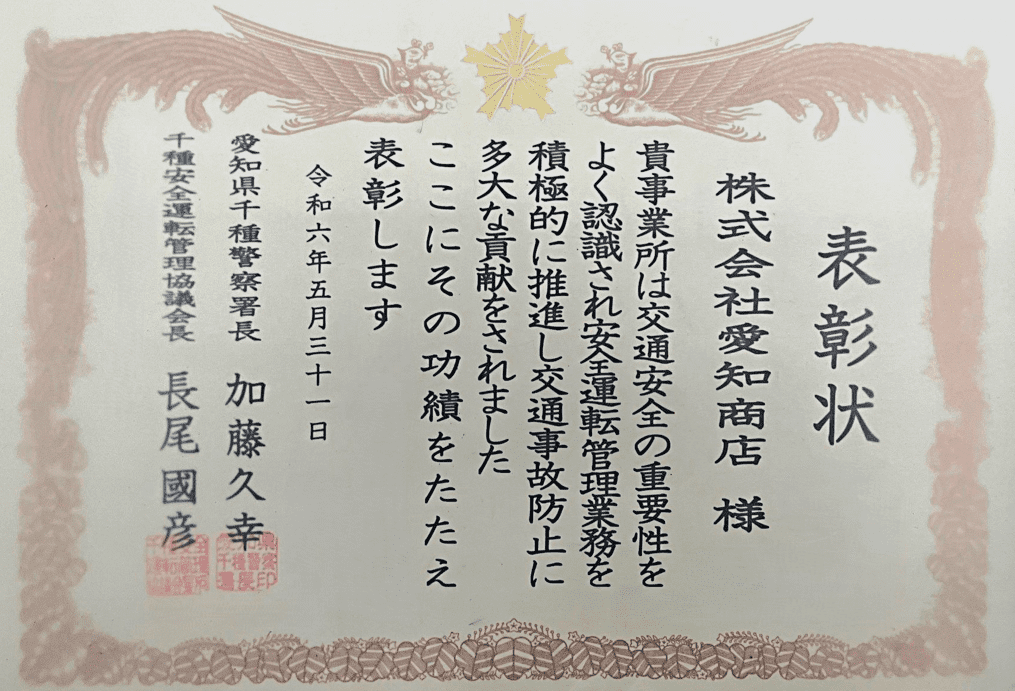 表彰状
株式会社愛知商店 様
貴事業所は交通安全の重要性を
よく認識され安全運転管理業務を
積極的に推進し交通事故防止に
多大な貢献をされました
ここにその功績をたたえ
表彰します
令和六年五月三十一日
愛知県千種警察署長 加藤久幸
千種安全運転管理協議会長 長尾國彦